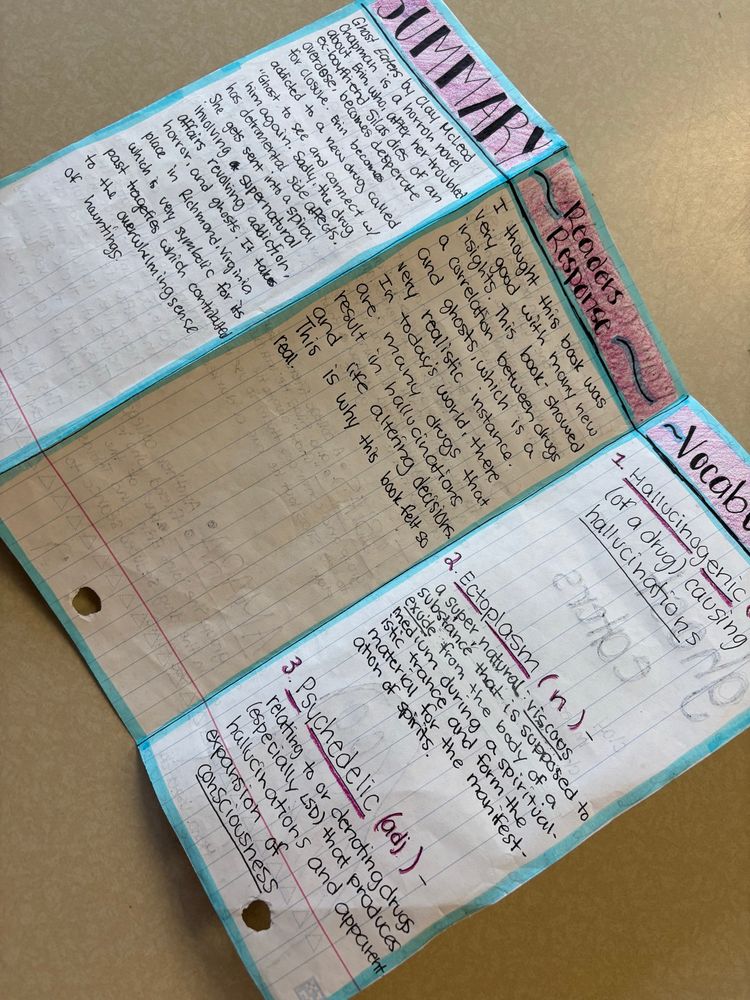 SUMMARY
Ghost Eaters by Clay McLeod
Chapman is a horror novel
about Erin, who, after her troubled
ex-boyfriend Silas dies of an
overdose becomes desperate
for closure. Erin becomes
addicted to a new drug called
"Ghost" to see and connect w/
him again. Sadly, the drug
has detrimental side affects.
She gets sent into a spiral
involving a supernatural
affairs revolving addiction,
horror and ghosts. It takes
place in Richmond, Virginia
which is very symbolic for its
past tragedies which contributed
to the overwhelming sense
of hauntings.
~Readers
Response~
I thought this book was
very good with many new
insights. This book showed
a correlation between drugs
and ghosts, which is a
very realistic instance.
In todays world there
are many drugs that
result in hallucinations
and life altering decisions.
This is why this book felt so
real.
~Vocabu
1. Hallucinogenic
(of a drug) causing
hallucinations
2. Ectoplasm (n) -
a super natural viscous
substance that is supposed to
exude from the body of a
medium during a spiritual-
istic trance and form the
material for the manifest-
ation of spirits.
3. Psychedelic (adj) -
relating to or denoting drugs
(especially LSD) that produces
hallucinations and apparent
expansion of
consciousness